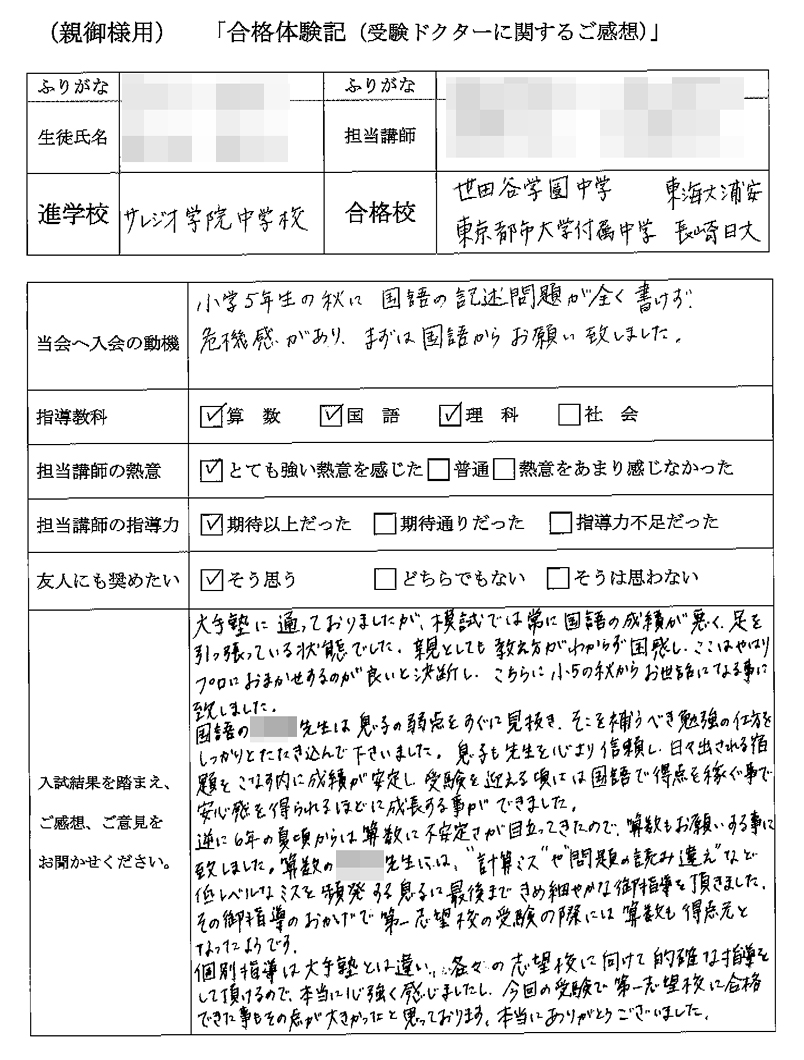 （親御様用）　「合格体験記（受験ドクターに関するご感想）」
ふりがな　ふりがな
生徒氏名　担当講師
進学校　サレジオ学院中学校　合格校　世田谷学園中学　東海大浦安
東京都市大学付属中学　長崎日大
当会へ入会の動機
小学5年生の秋に国語の記述問題が全く書けず、
危機感があり、まずは国語からお願い致しました。
指導教科　☑算　数　☑国　語　☑理　科　☐社　会
担当講師の熱意　☑とても強い熱意を感じた☐普通☐熱意をあまり感じなかった
担当講師の指導力　☑期待以上だった　☐期待通りだった　☐指導力不足だった
友人にも奨めたい　☑そう思う　☐どちらでもない　☐そうは思わない
入試結果を踏まえ、
ご感想、ご意見を
お聞かせください。
大手塾に通っておりましたが、模試では常に国語の成績が悪く、足を
引っ張っている状態でした。親としても教え方がわからず困惑し、ここはやはり
プロにおまかせするのが良いと決断し、こちらに小5の秋からお世話になる事に
致しました。
国語の　先生は息子の弱点をすぐに見抜き、そこを補うべき勉強の仕方を
しっかりとたたき込んで下さいました。息子も先生を心より信頼し、日々出される宿
題をこなす内に成績が安定し、受験を迎える頃には国語で得点を稼ぐ事で
安心感を得られるほどに成長する事ができました。
逆に6年の夏頃からは算数に不安定さが目立ってきたので、算数もお願いする事に
致しました。算数の　先生には、"計算ミス"や"問題の読み違え"など
低レベルなミスを頻発する息子に最後まできめ細やかな御指導を頂きました。
その御指導のおかげで第一志望校の受験の際には算数も得点元と
なったようです。
個別指導は大手塾とは違い、各々の志望校に向けて的確な指導を
して頂けるので、本当に心強く感じましたし、今回の受験で第一志望校に合格
できた事もその点が大きかったと思っております。本当にありがとうございました。